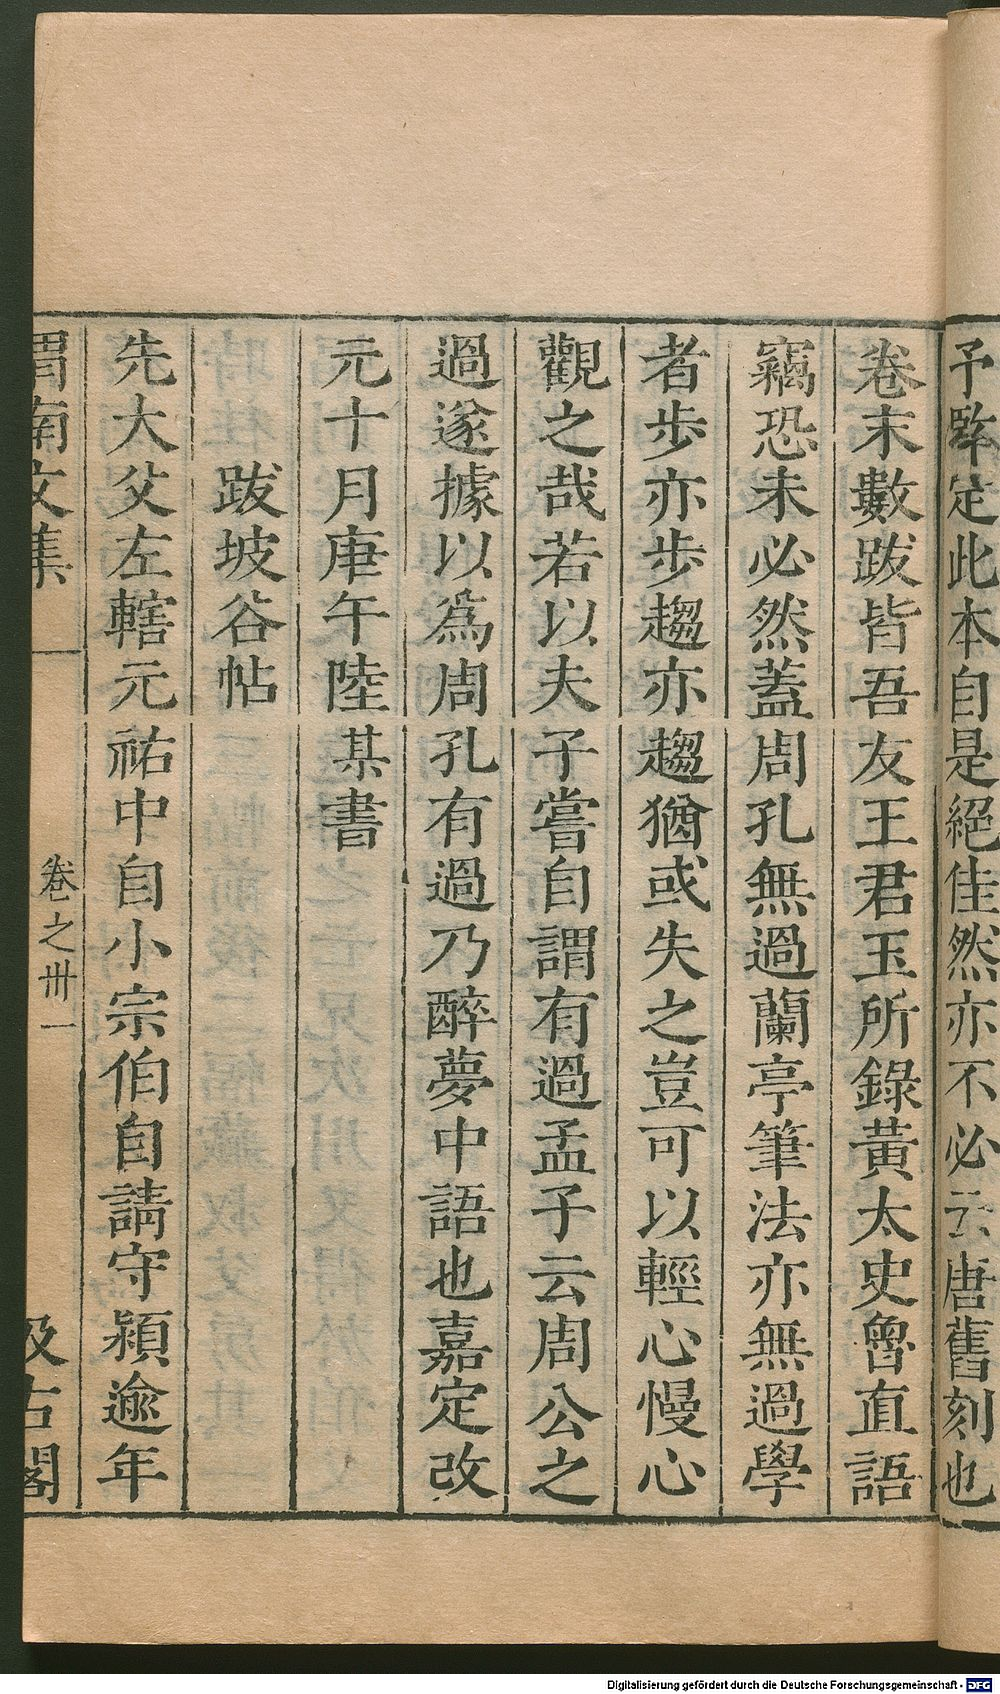 予評定此本自是絕佳然亦不必云唐舊刻也
卷末數跋皆吾友王君玉所錄黃太史魯直語
竊恐未必然蓋周孔無過蘭亭筆法亦無過學
者步亦步趨亦趨猶或失之豈可以輕心慢心
觀之哉若以夫子嘗自謂有過孟子云周公之
過遂據以為周孔有過乃醉夢中語也嘉定改
元十月庚午陸某書
跋坡谷帖
先大父左轄元祐中自小宗伯自請守潁逾年
渭南文集
卷之卅一
汲古閣
Digitalisierung gefördert durch die Deutsche Forschungsgemeinschaft - DFG